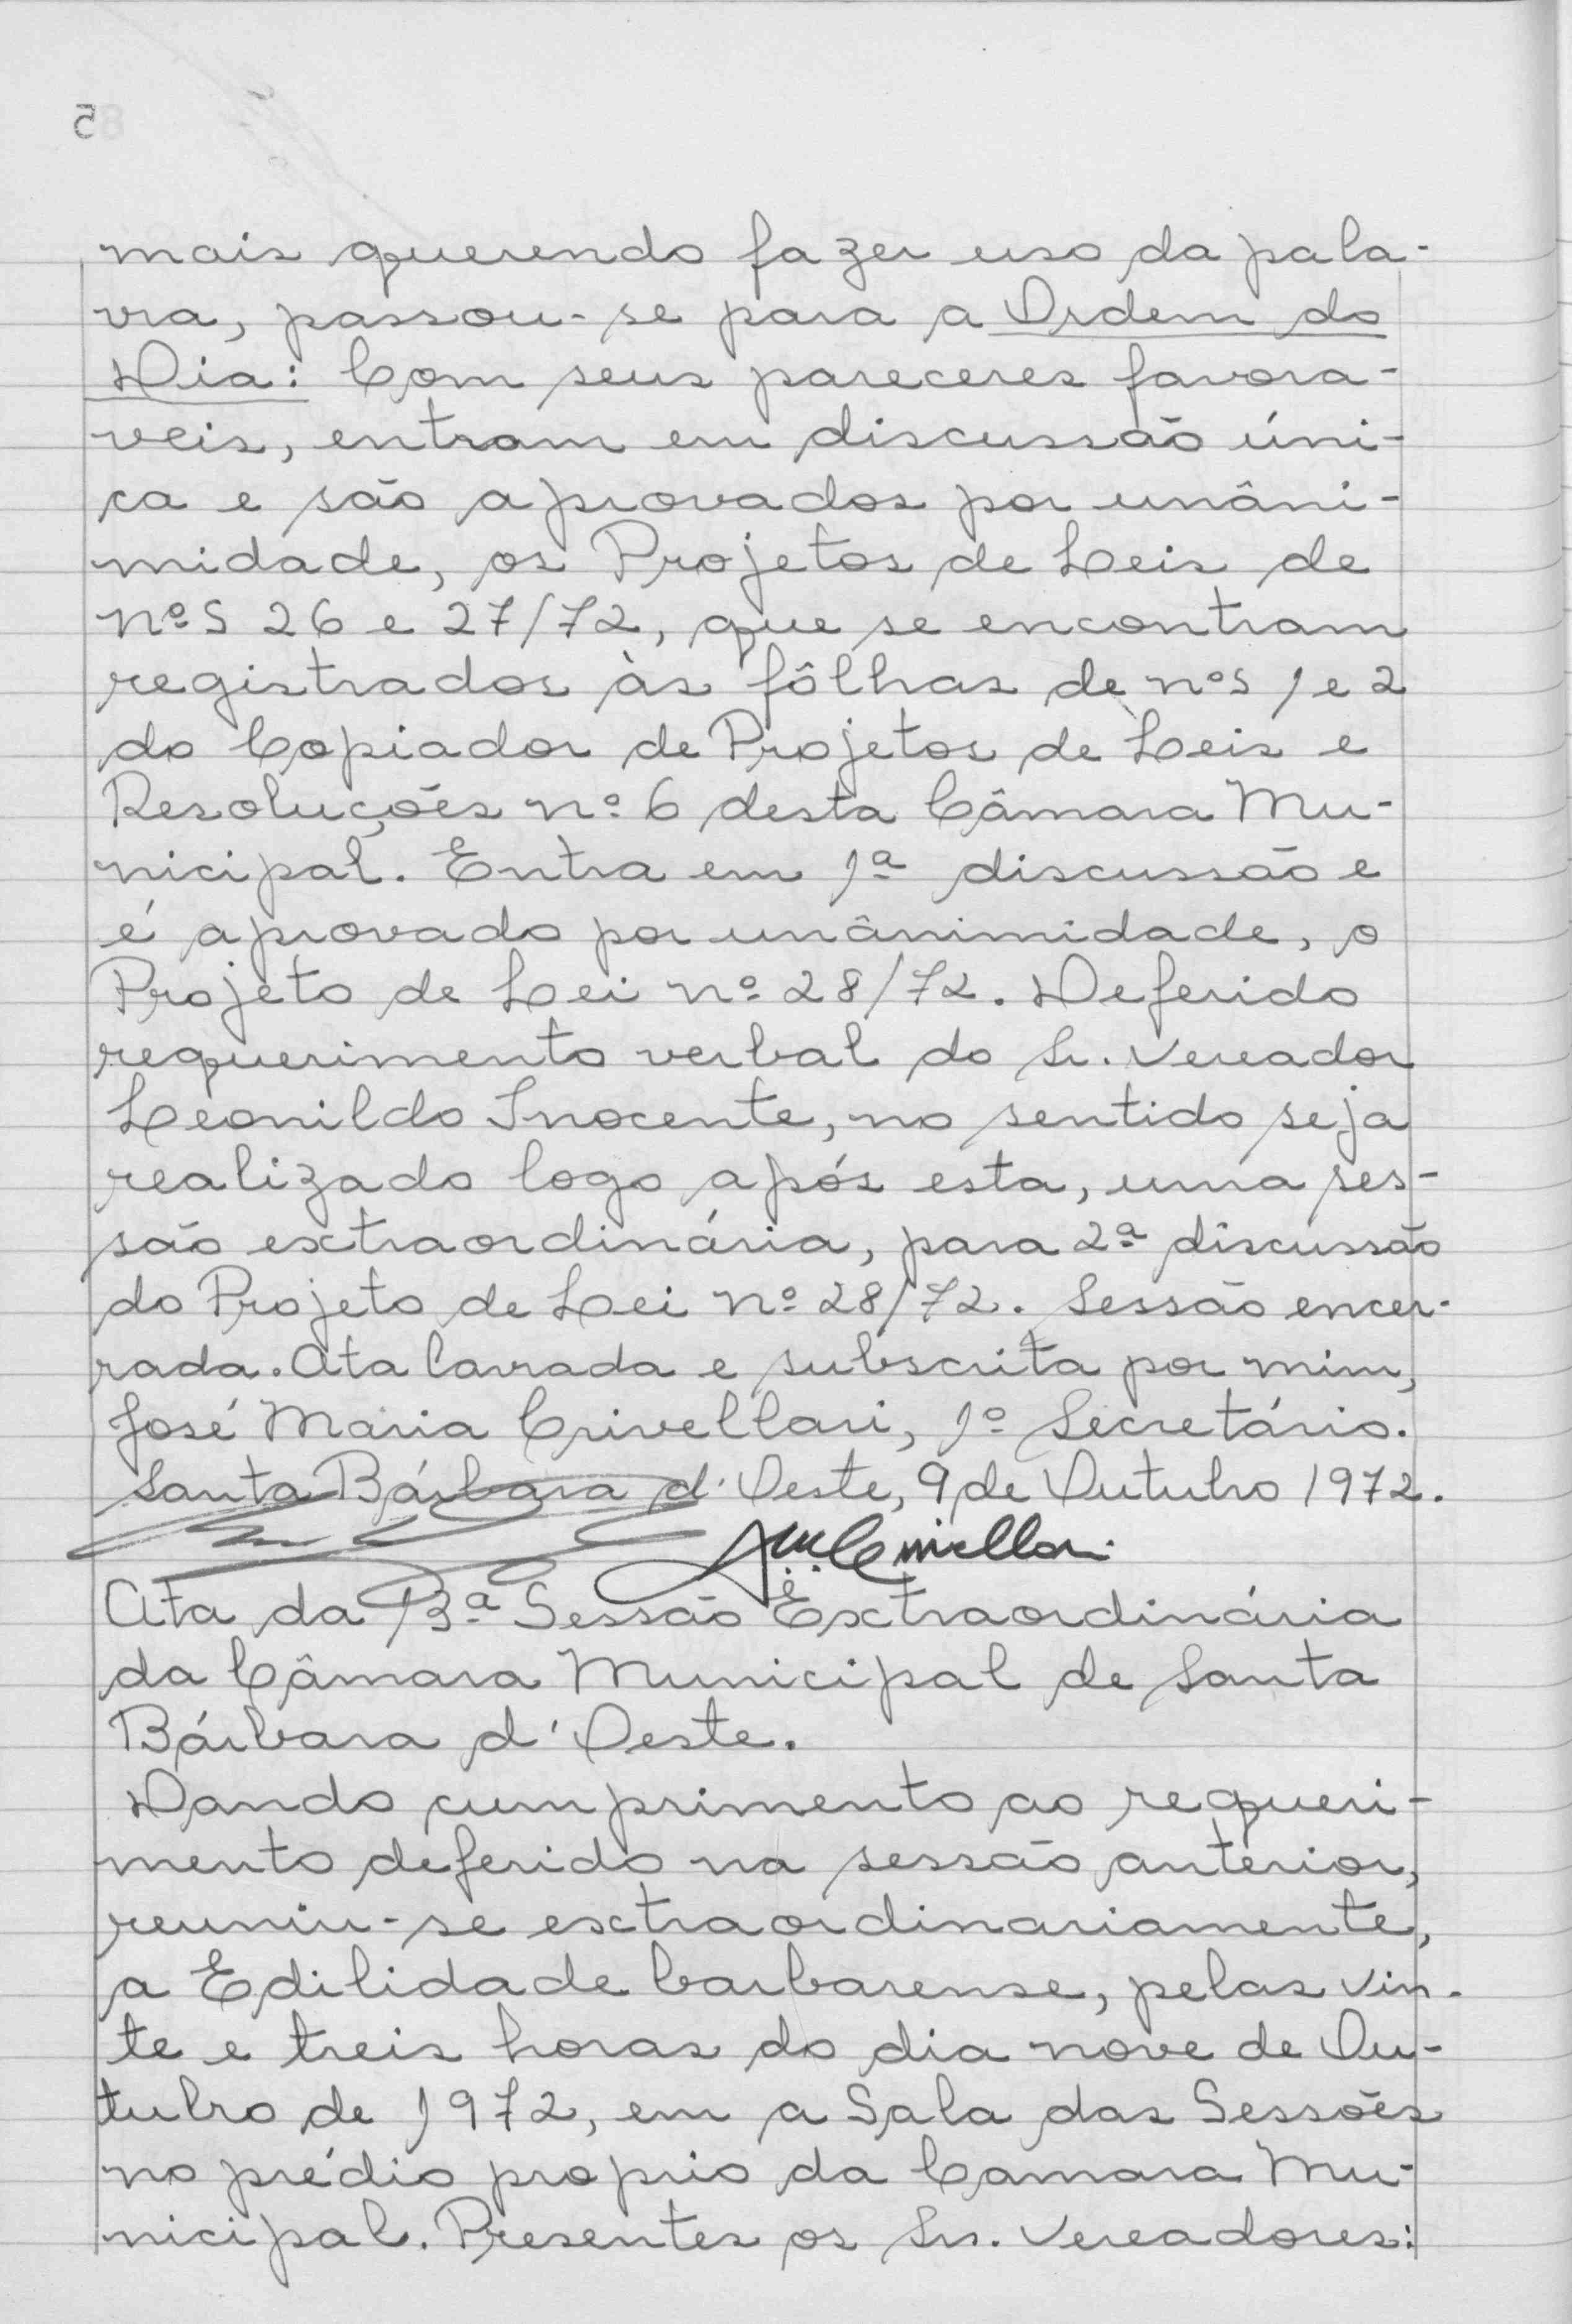 mais querendo fazer uso da pala-
vra, passou-se para a Ordem do
Dia: Com seus pareceres favora-
veis, entram em discussão úni-
ca e são aprovados por unâni-
midade, os Projetos de Leis de
nºs 26 e 27/72, que se encontram
registrados às fôlhas de nºs 1 e 2
do Copiador de Projetos de Leis e
Resoluções nº 6 desta Câmara Mu-
nicipal. Entra em 1ª discussão e
é aprovado por unânimidade, o
Projeto de Lei nº 28/72. Deferido
requerimento verbal do Sr. Vereador
Leonildo Inocente, no sentido seja
realizado logo após esta, uma ses-
são extraordinária, para 2ª discussão
do Projeto de Lei nº 28/72. Sessão encer-
rada. Ata lavrada e subscrita por mim,
José Maria Crivellari, 1º Secretário.
Santa Bárbara d'Oeste, 9 de Outubro 1972.
Ata da 13ª Sessão Extraordinária
da Câmara Municipal de Santa
Bárbara d'Oeste.
Dando cumprimento ao requeri-
mento deferido na sessão anterior,
reuniu-se extraordinariamente,
a Edilidade barbarense, pelas vin-
te e treis horas do dia nove de Ou-
tubro de 1972, em a Sala das Sessões
no prédio proprio da Camara Mu-
nicipal. Presentes os Srs. Vereadores: